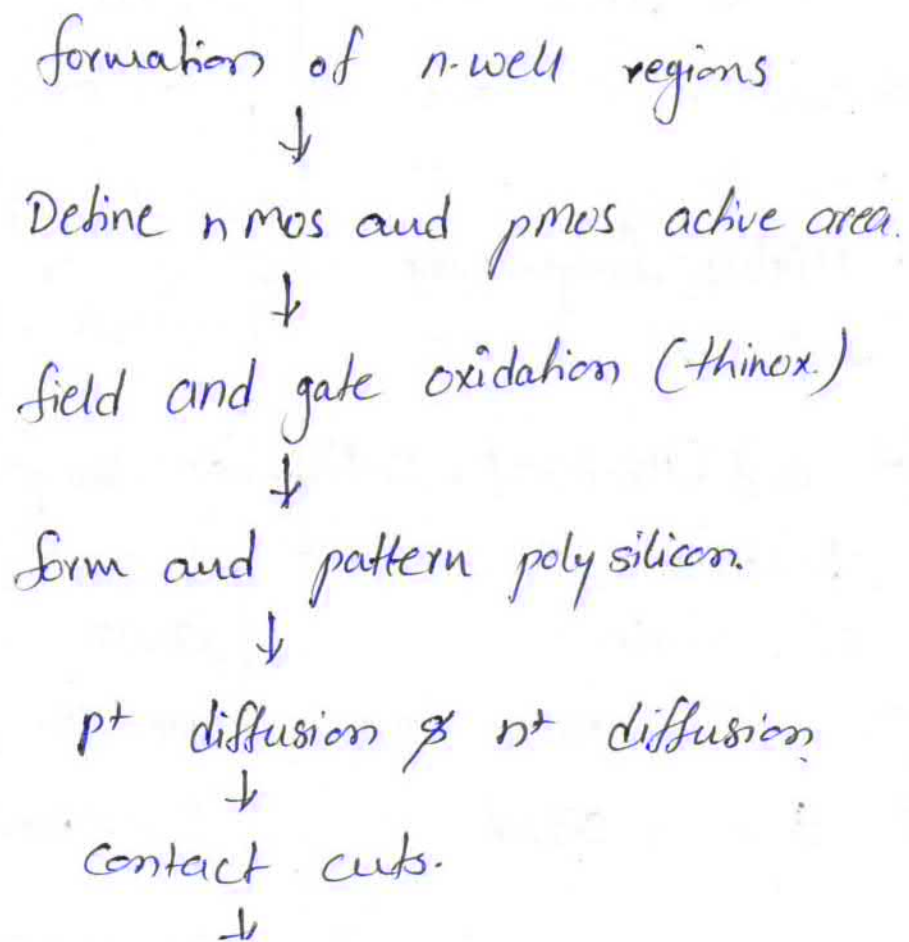 formation of n-well regions
↓
Define nmos and pmos active area.
↓
field and gate oxidation (thinox.)
↓
form and pattern polysilicon.
↓
p+ diffusion & n+ diffusion
↓
Contact cuts.
↓